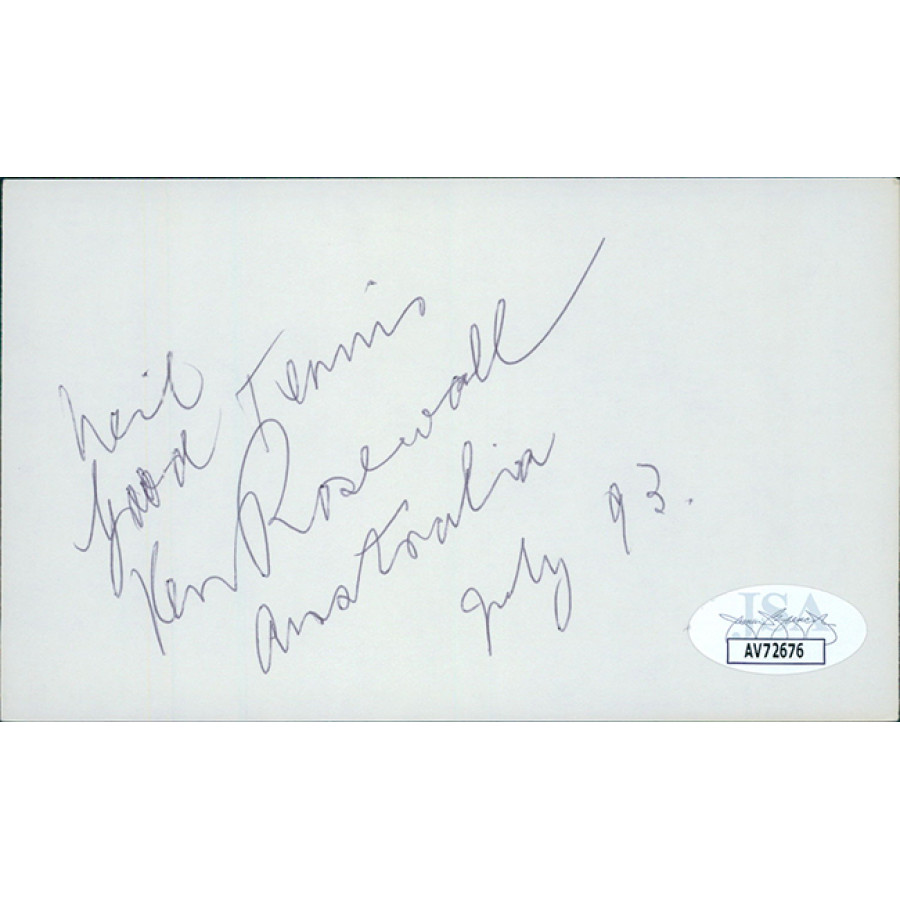 Neil
Good Tennis
Ken Rosewall
Australia
July 93.
JSA
AV72676